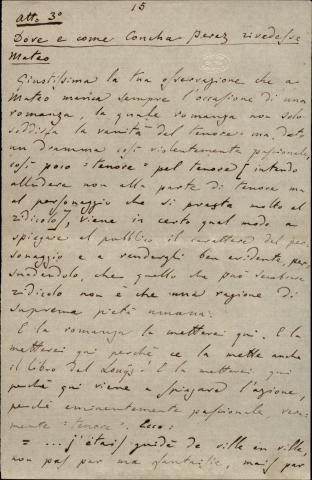 15
Atto 3º
Dove e come Concha Perez rivedesse
Mateo
Giustissima la tua osservazione che a
Mateo manca sempre l'occasione di una
romanza, la quale romanza non solo
soddisfa la vanità del tenore: ma, dato
un dramma così violentemente passionale,
così poco "tenore" pel tenore [intendo
alludere non alla parte di tenore ma
al personaggio che si presta molto al
ridicolo], viene in certo qual modo a
spiegare al pubblico il carattere del per-
sonaggio e a renderghi ben evidente, per-
suadendolo, che quello che può sembrare
ridicolo non è che una ragione di
suprema pietà umana.
E la romanza la metterei qui. E la
metterei qui perché ce la mette anche
il libro del Louÿs. E la metterei qui
perché qui viene a spiegare l'azione,
perché eminentemente passionale, vera-
mente "tenore". Ecco:
= ... j'étais guidé de ville en ville,
non pas par ma fantaisie, mais par